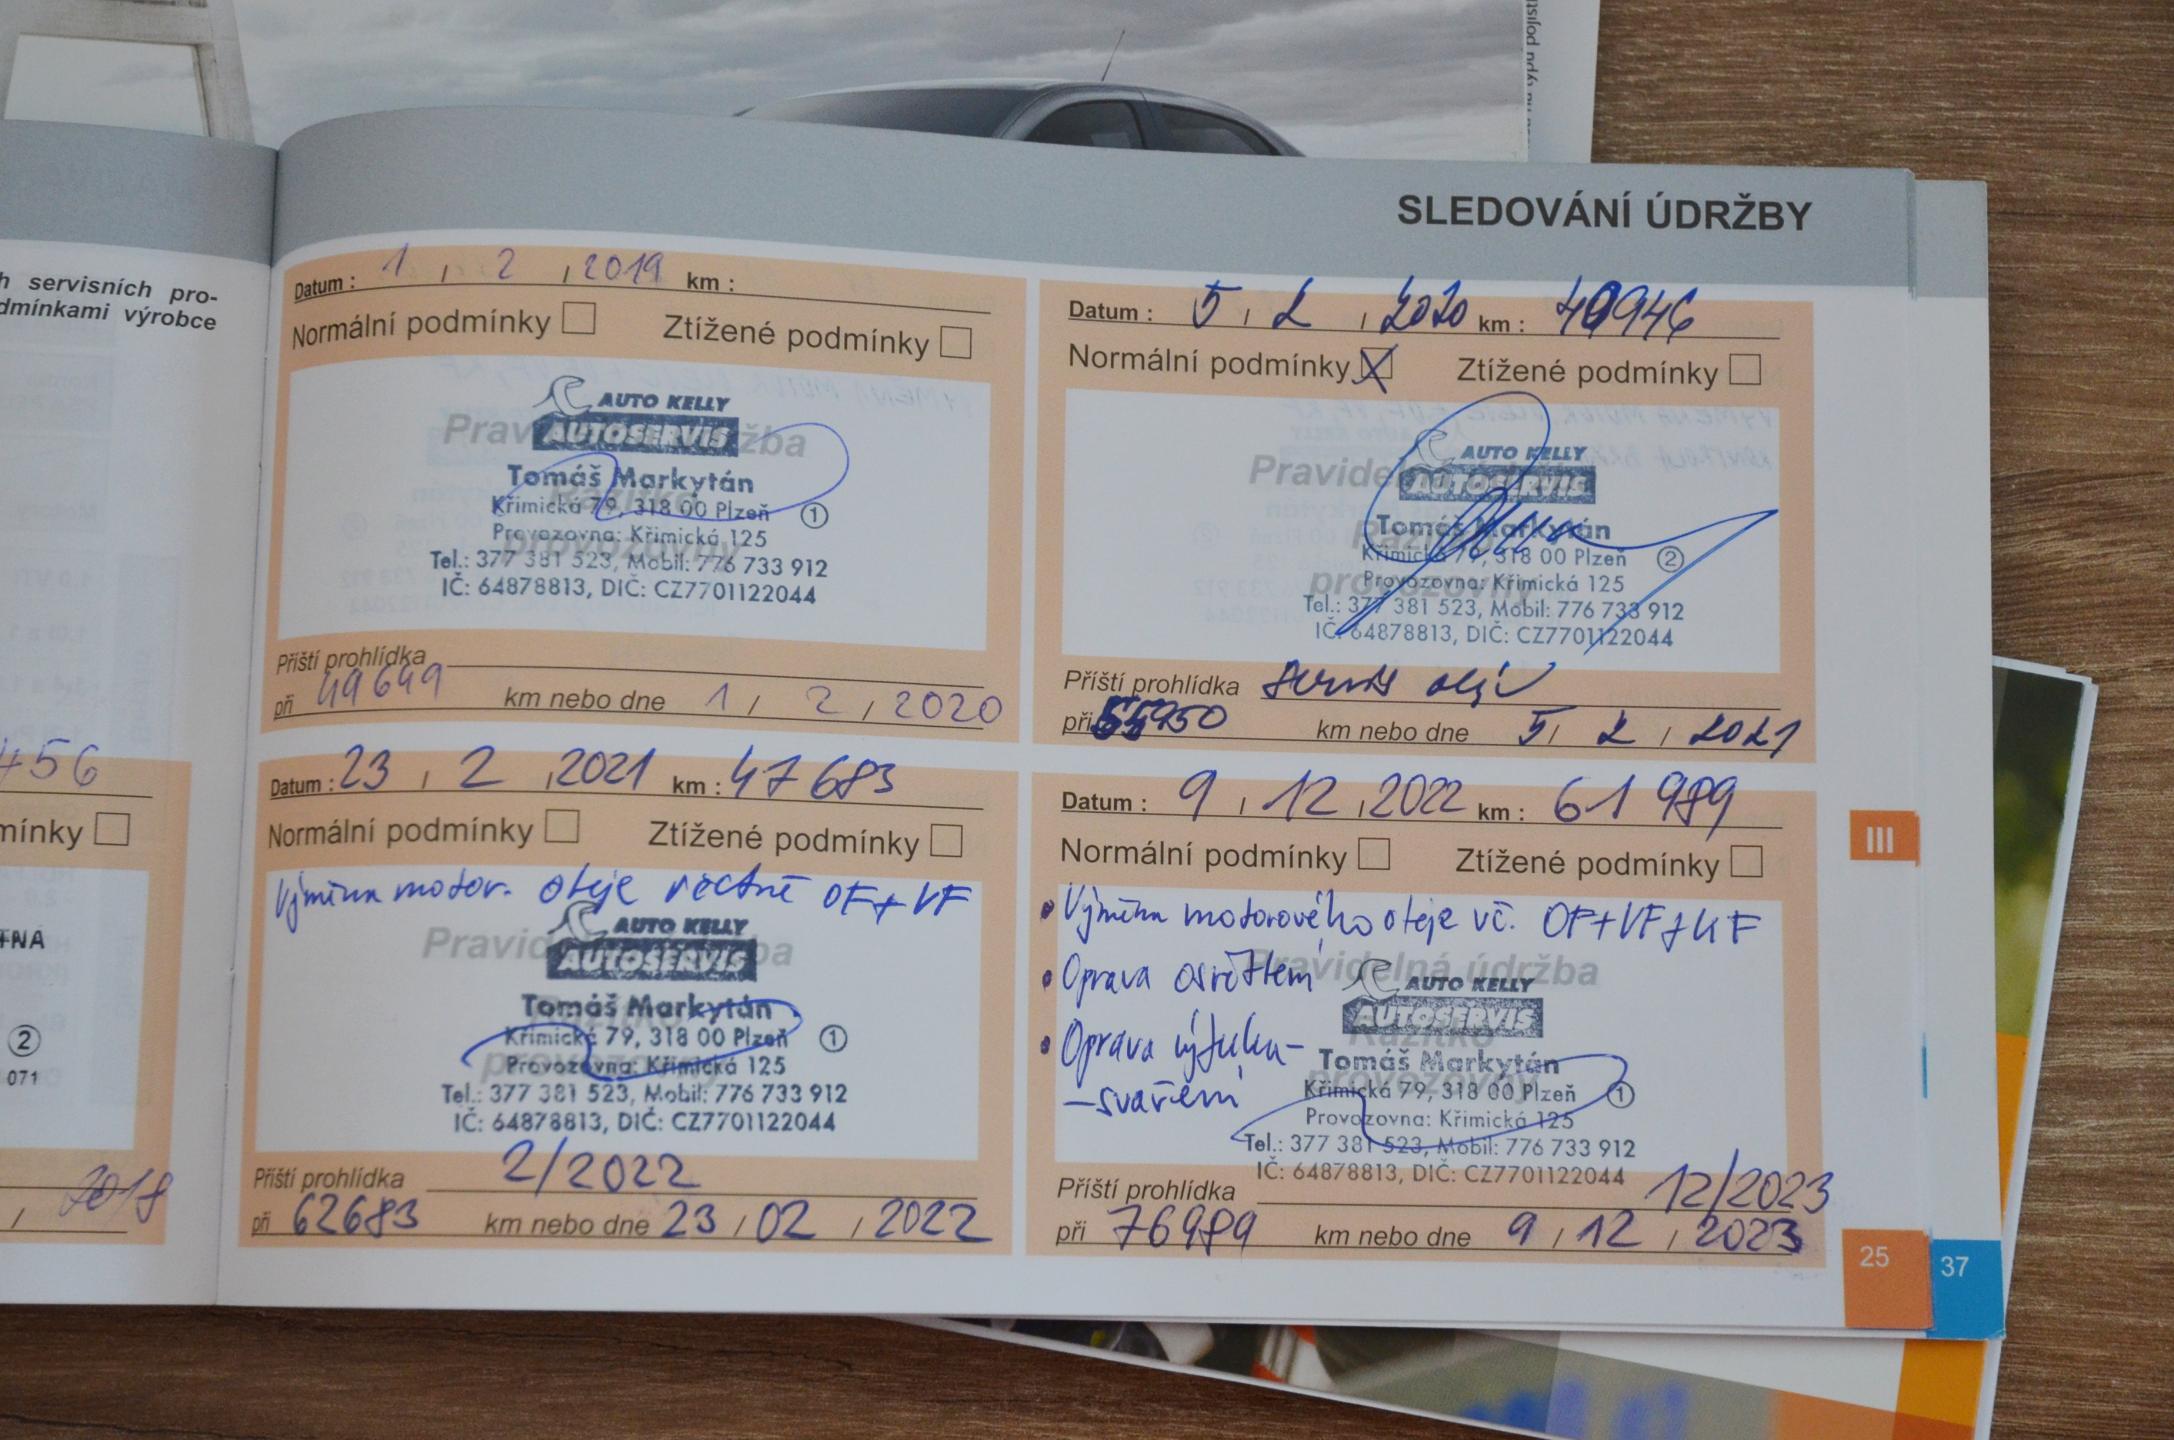 SLEDOVÁNÍ ÚDRŽBY
h servisních pro-
dmínkami výrobce
456
mínky
2
071
2018
Datum : 1 / 2 / 2019 km :
Normální podmínky Ztížené podmínky
AUTO KELLY
Pravidelná údržba
AUTOSERVIS
Tomáš Markytán
Razítko
Křimická 79, 318 00 Plzeň 1
Provozovna: Křimická 125
provozovny
Tel.: 377 381 523, Mobil: 776 733 912
IČ: 64878813, DIČ: CZ7701122044
Příští prohlídka
při 49649 km nebo dne 1 / 2 / 2020
Datum : 5 / 2 / 2020 km : 40946
Normální podmínky X Ztížené podmínky
AUTO KELLY
Pravidelná údržba
AUTOSERVIS
Tomáš Markytán
Razítko
Křimická 79, 318 00 Plzeň 2
Provozovna: Křimická 125
provozovny
Tel.: 377 381 523, Mobil: 776 733 912
IČ: 64878813, DIČ: CZ7701122044
Příští prohlídka servis olej
při 55950 km nebo dne 5 / 2 / 2021
Datum : 23 / 2 / 2021 km : 47683
Normální podmínky Ztížené podmínky
Výměna motor. oleje včetně OF+VF
AUTO KELLY
Pravidelná údržba
AUTOSERVIS
Tomáš Markytán
Křimická 79, 318 00 Plzeň 1
Provozovna: Křimická 125
provozovny
Tel.: 377 381 523, Mobil: 776 733 912
IČ: 64878813, DIČ: CZ7701122044
Příští prohlídka 2/2022
při 62683 km nebo dne 23 / 02 / 2022
Datum : 9 / 12 / 2022 km : 61 989
Normální podmínky Ztížené podmínky
• Výměna motorového oleje vč. OF+VF+KF
• Oprava osvětlení
Pravidelná údržba
AUTO KELLY
AUTOSERVIS
Razítko
• Oprava výfuku-
-svaření
Tomáš Markytán
provozovny
Křimická 79, 318 00 Plzeň 1
Provozovna: Křimická 125
Tel.: 377 381 523, Mobil: 776 733 912
IČ: 64878813, DIČ: CZ7701122044
Příští prohlídka 12/2023
při 76989 km nebo dne 9 / 12 / 2023
III
25
37